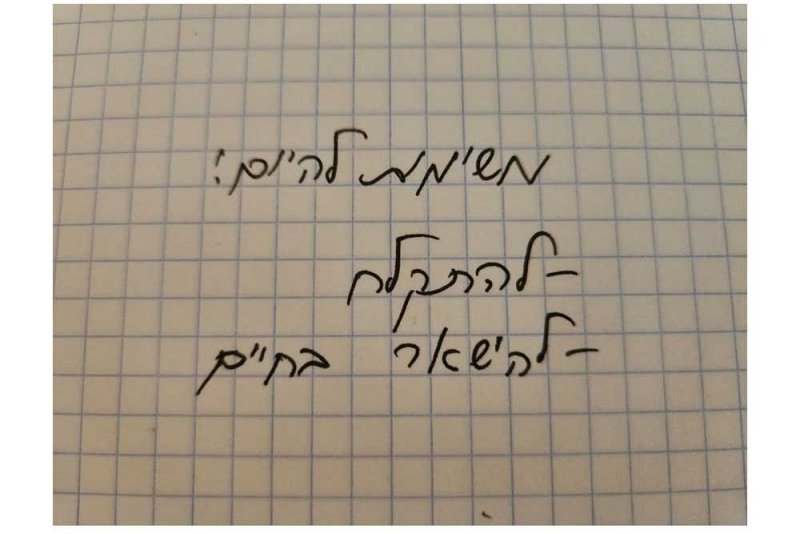 משימות להיום:
-להתקלח
-להישאר בחיים